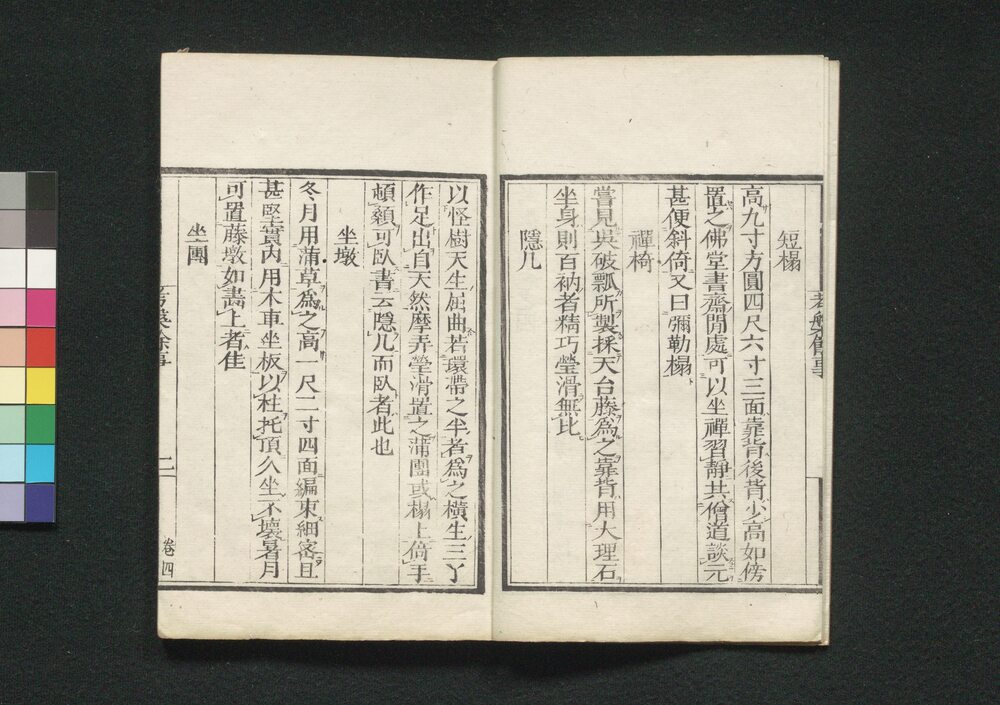 短榻
高九寸方圓四尺六寸三面靠背後背少高如傍
置之佛堂書齋閒處可以坐禪習靜共僧道談元
甚便斜倚又曰彌勒榻
禪椅
嘗見吳破瓢所製採天台藤為之靠背用大理石
坐身則百衲者精巧瑩滑無比
隱几
以怪樹天生屈曲若環帶之半者為之橫生三丫
作足出自天然摩弄瑩滑置之蒲團或榻上倚手
頓顙可臥書云隱几而臥者此也
坐墩
冬月用蒲草為之高一尺二寸四面編束細密且
甚堅實內用木車坐板以柱托頂久坐不壞暑月
可置藤墩如畵上者佳
坐團
二
卷四